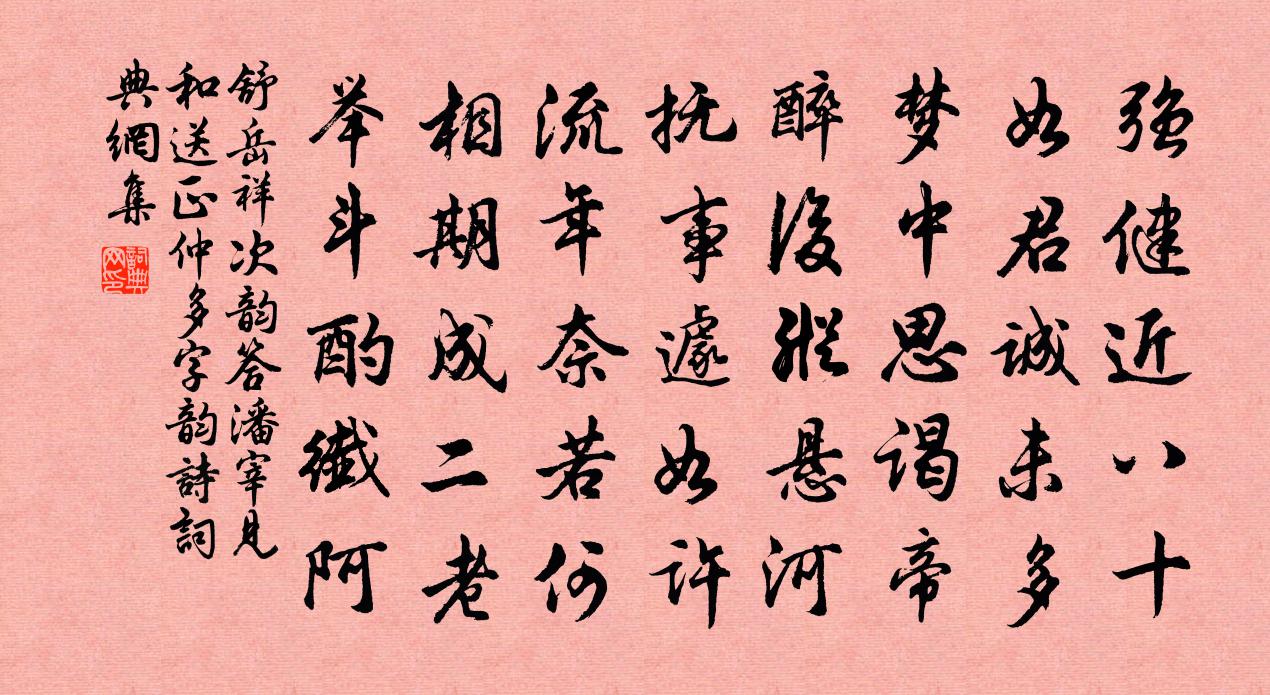 强健近八十
如君诚未多
梦中思谒帝
醉後縱悬河
抚事遽如许
流年奈若何
相期成二老
举斗酌纖阿
舒岳祥次韵答潘宰见
和送正仲多字韵詩詞
典網集
詞典网印